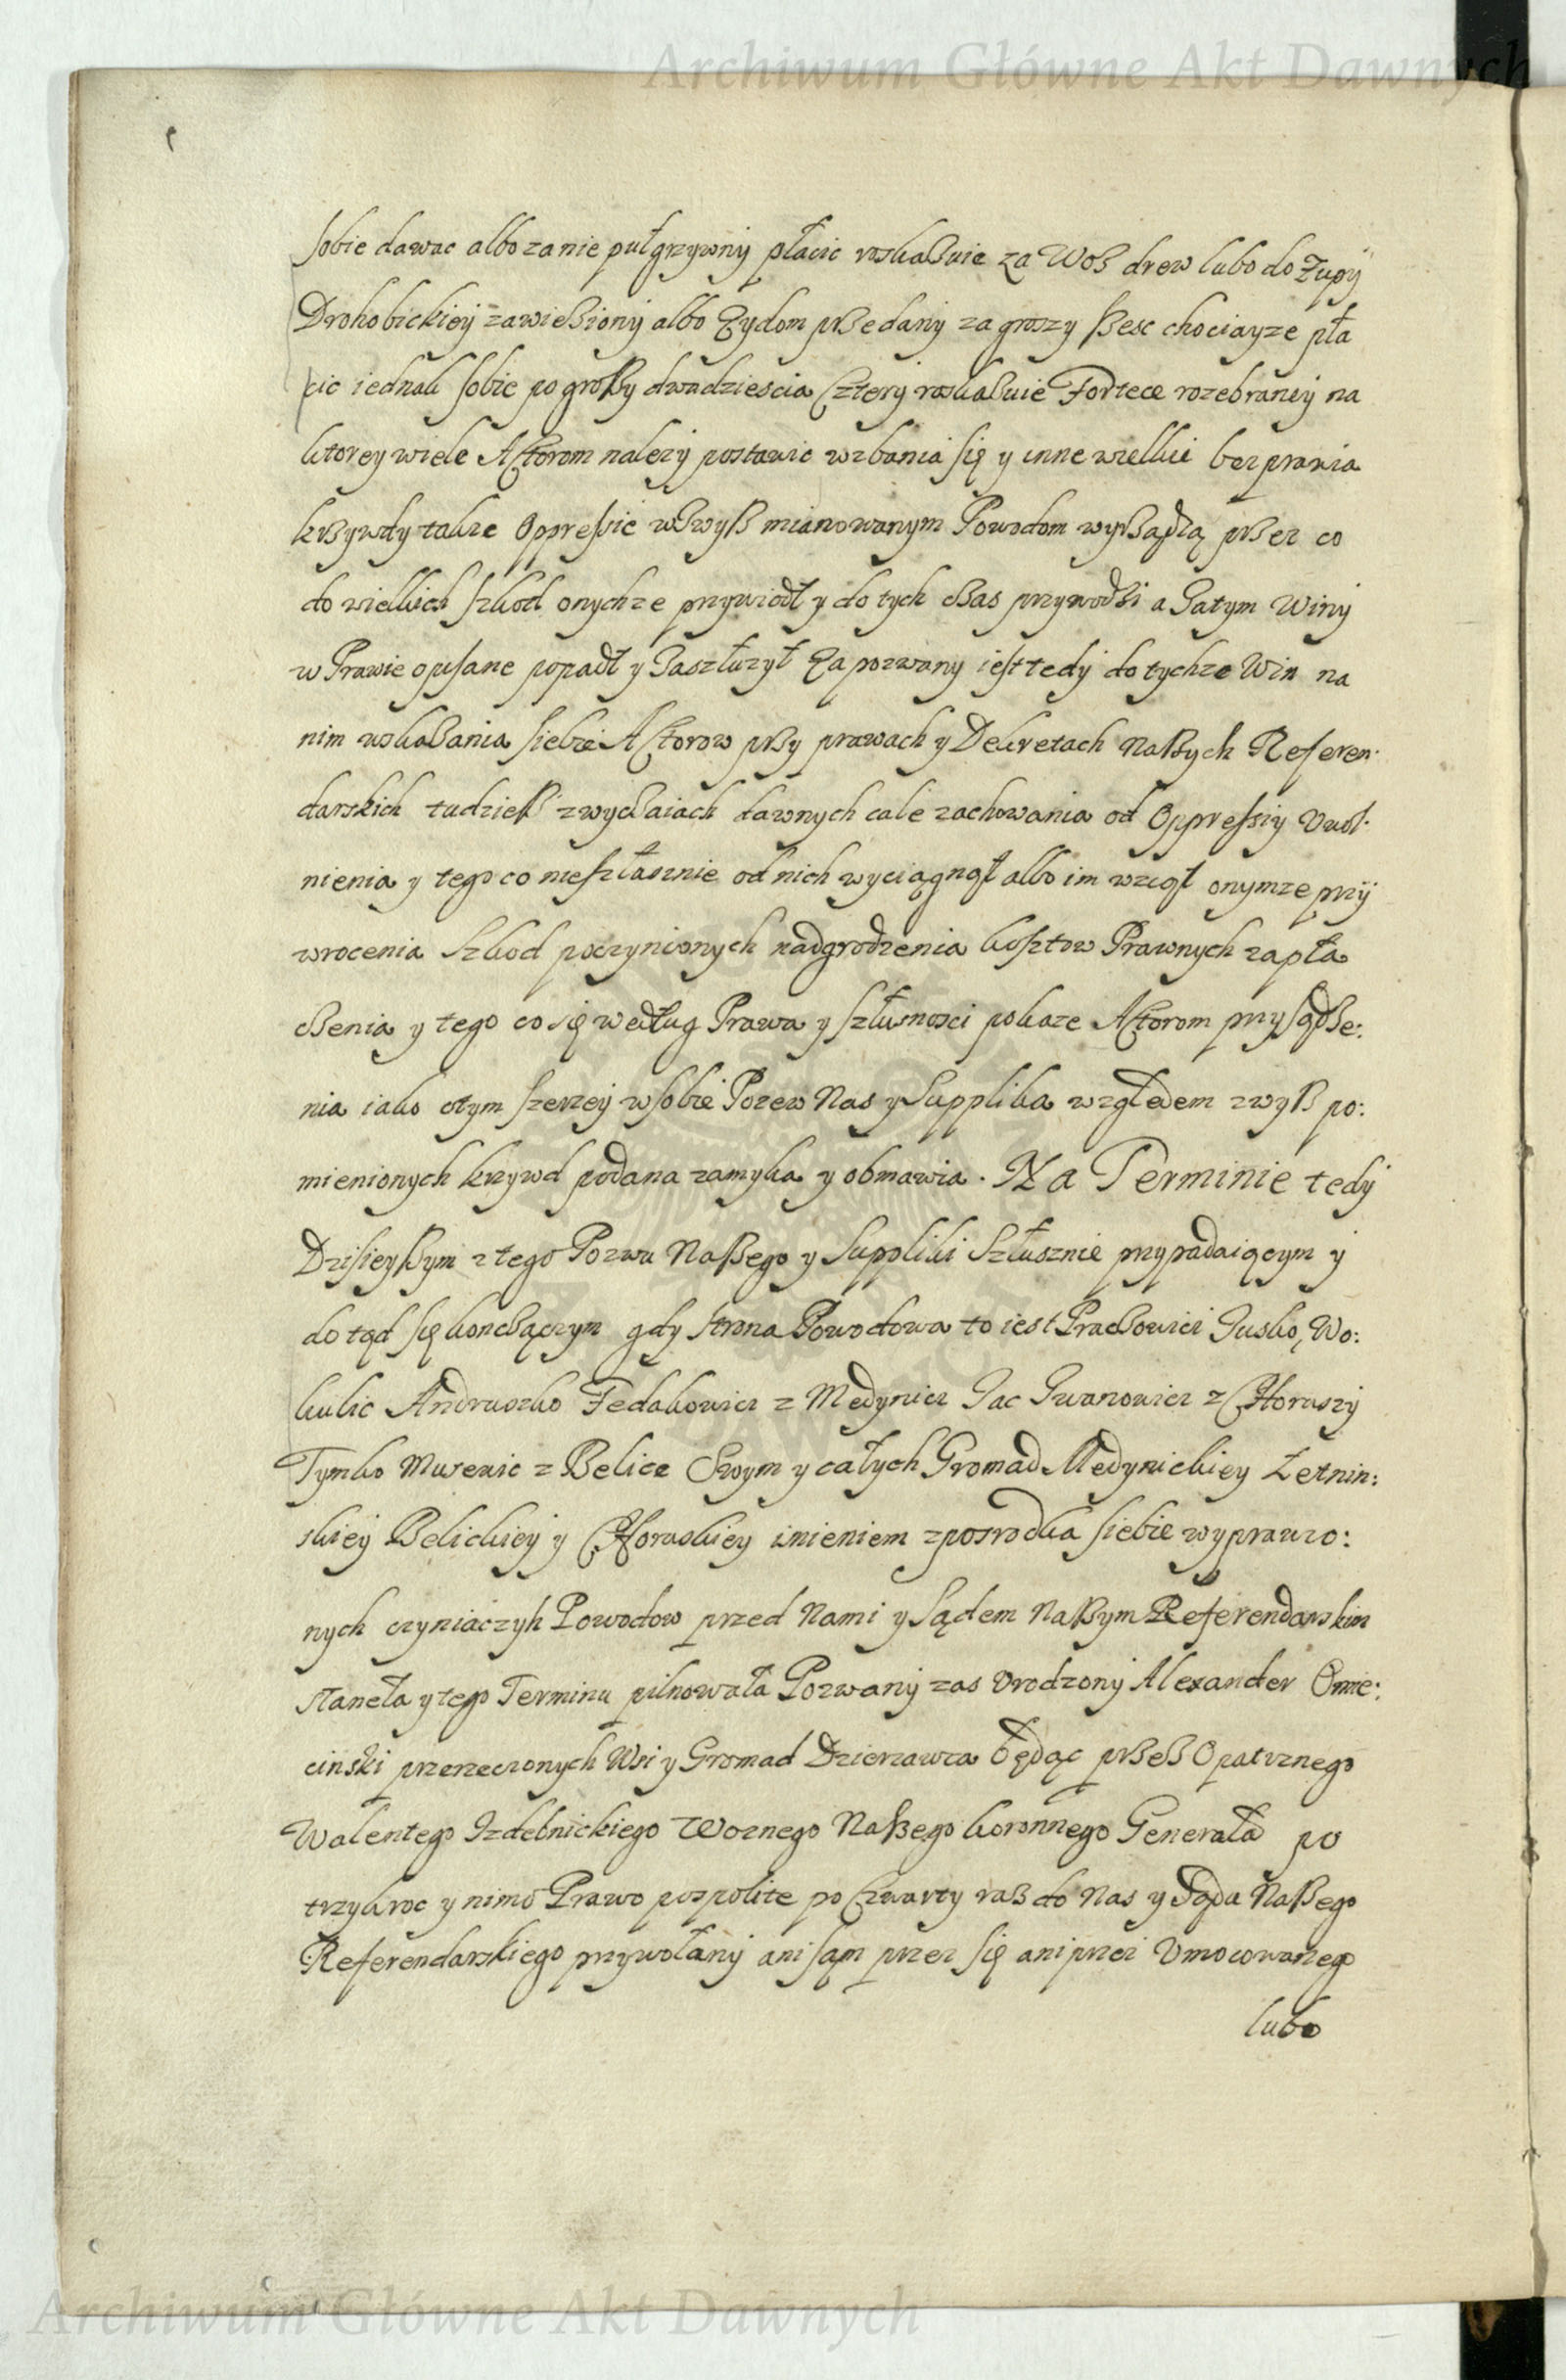 Archiwum Główne Akt Dawnych
sobie dawac albo zanie pułgrzywny płacic roskaßuie za Woß drew lubo do Zupy
Drohobickiey zawießiony albo Zydom prßedany za groszy ßesc chociayze pła
cic iednak sobie po großy dwadziescia Cztery roskaßuie Fortece rozebraney na
ktorey wiele Actorom nalezy postawic wzbania się y inne wielkie bezprawia
krßywdy takze Oppressie wßwyß mianowanym Powodom wyrßądza prßez co
do wielkich szkod onychze przywiodł y do tych cßas przywodßi a Zatym Winy
w Prawie opisane popadł y Zaszłuzył Zapozwany iest tedy do tychze Win na
nim uskaßania siebie Actorow prßy prawach y Dekretach Naßych Referen
darskich tudzieß zwycßaiach dawnych cale zachowania od Oppressiy Uwol
nienia y tego co niesłusznie od nich wyciągnął albo im wziął onymze przy
wrocenia Szkod poczynionych nadgrodzenia kosztow Prawnych zapła
cßenia y tego co się według Prawa y Szłusznosci pokaze Actorom przysądße:
nia iako otym szerzey w sobie Pozew Nas y Supplika względem zwyß po:
mienionych krzywd podana zamyka y obmawia. Na Terminie tedy
Dzisieyßym z tego Pozwu Naßego y Suppliki Szłusznie przypadaiącym y
dotąd się koncßączym gdy strona Powodowa to iest Pracßowici Jusko, Wo:
kulic Andruszko Fedakowicz z Medynicz Jac Jwanowicz z Horuszy
Tymko Musenic z Belice Swym y całych Gromad Medynickiey Letnin:
skiey Belickiey y Horuskiey imieniem zposrodka siebie wyprawio:
nych czyniaczyh Powodow przed Nami y Sądem Naßym Referendarskim
staneła y tego Terminu pilnowała Pozwany zas Urodzony Alexander Omie:
cinski przerzeczonych Wsi y Gromad Dzierzawca będąc prßeß Opatrznego
Walentego Izdebnickiego Woznego Naßego koronnego Generała po
trzykroc y nimo Prawo pospolite po Czwarty raß do Nas y Sądu Naßego
Referendarskiego przywołany ani sąm przez się ani przez Umocowanego
lubo
Archiwum Główne Akt Dawnych